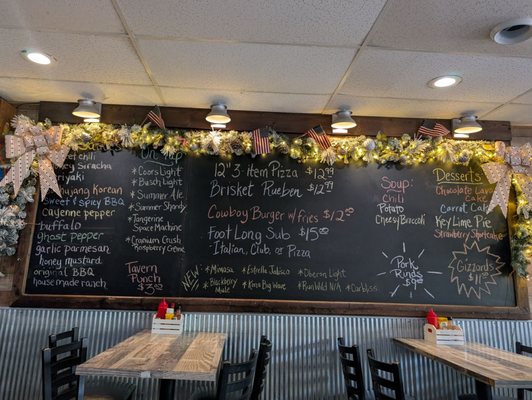 On Tap
* Coors Light
* Busch Light
* Summer Ale
* Summer Shandy
* Tangerine
Space Machine
* Cranium Crush
Raspberry Gose
Tavern
Punch $3.50
sweet chili
teriyaki
honey Sriracha
Korean
sweet & spicy BBQ
cayenne pepper
buffalo
Ghost pepper
garlic parmesan
honey mustard
original BBQ
house made ranch
12" 3 item Pizza $12.99
Brisket Rueben $12.99
Cowboy Burger w/ Fries $12.50
Foot Long Sub $15.00
Italian, Club, or Pizza
NEW!
* Mimosa
* Estrella Jalisco
* Oberon Light
* Blackberry
Mule
* Kona Big Wave
* Ram Wild N/A
* Carbliss
Soup:
Chili
Potato
Cheesy/Broccoli
Pork
Rinds
$9.00
Desserts:
Chocolate
Carrot Cake
Key Lime Pie
Strawberry Shortcake
GIZZARDS